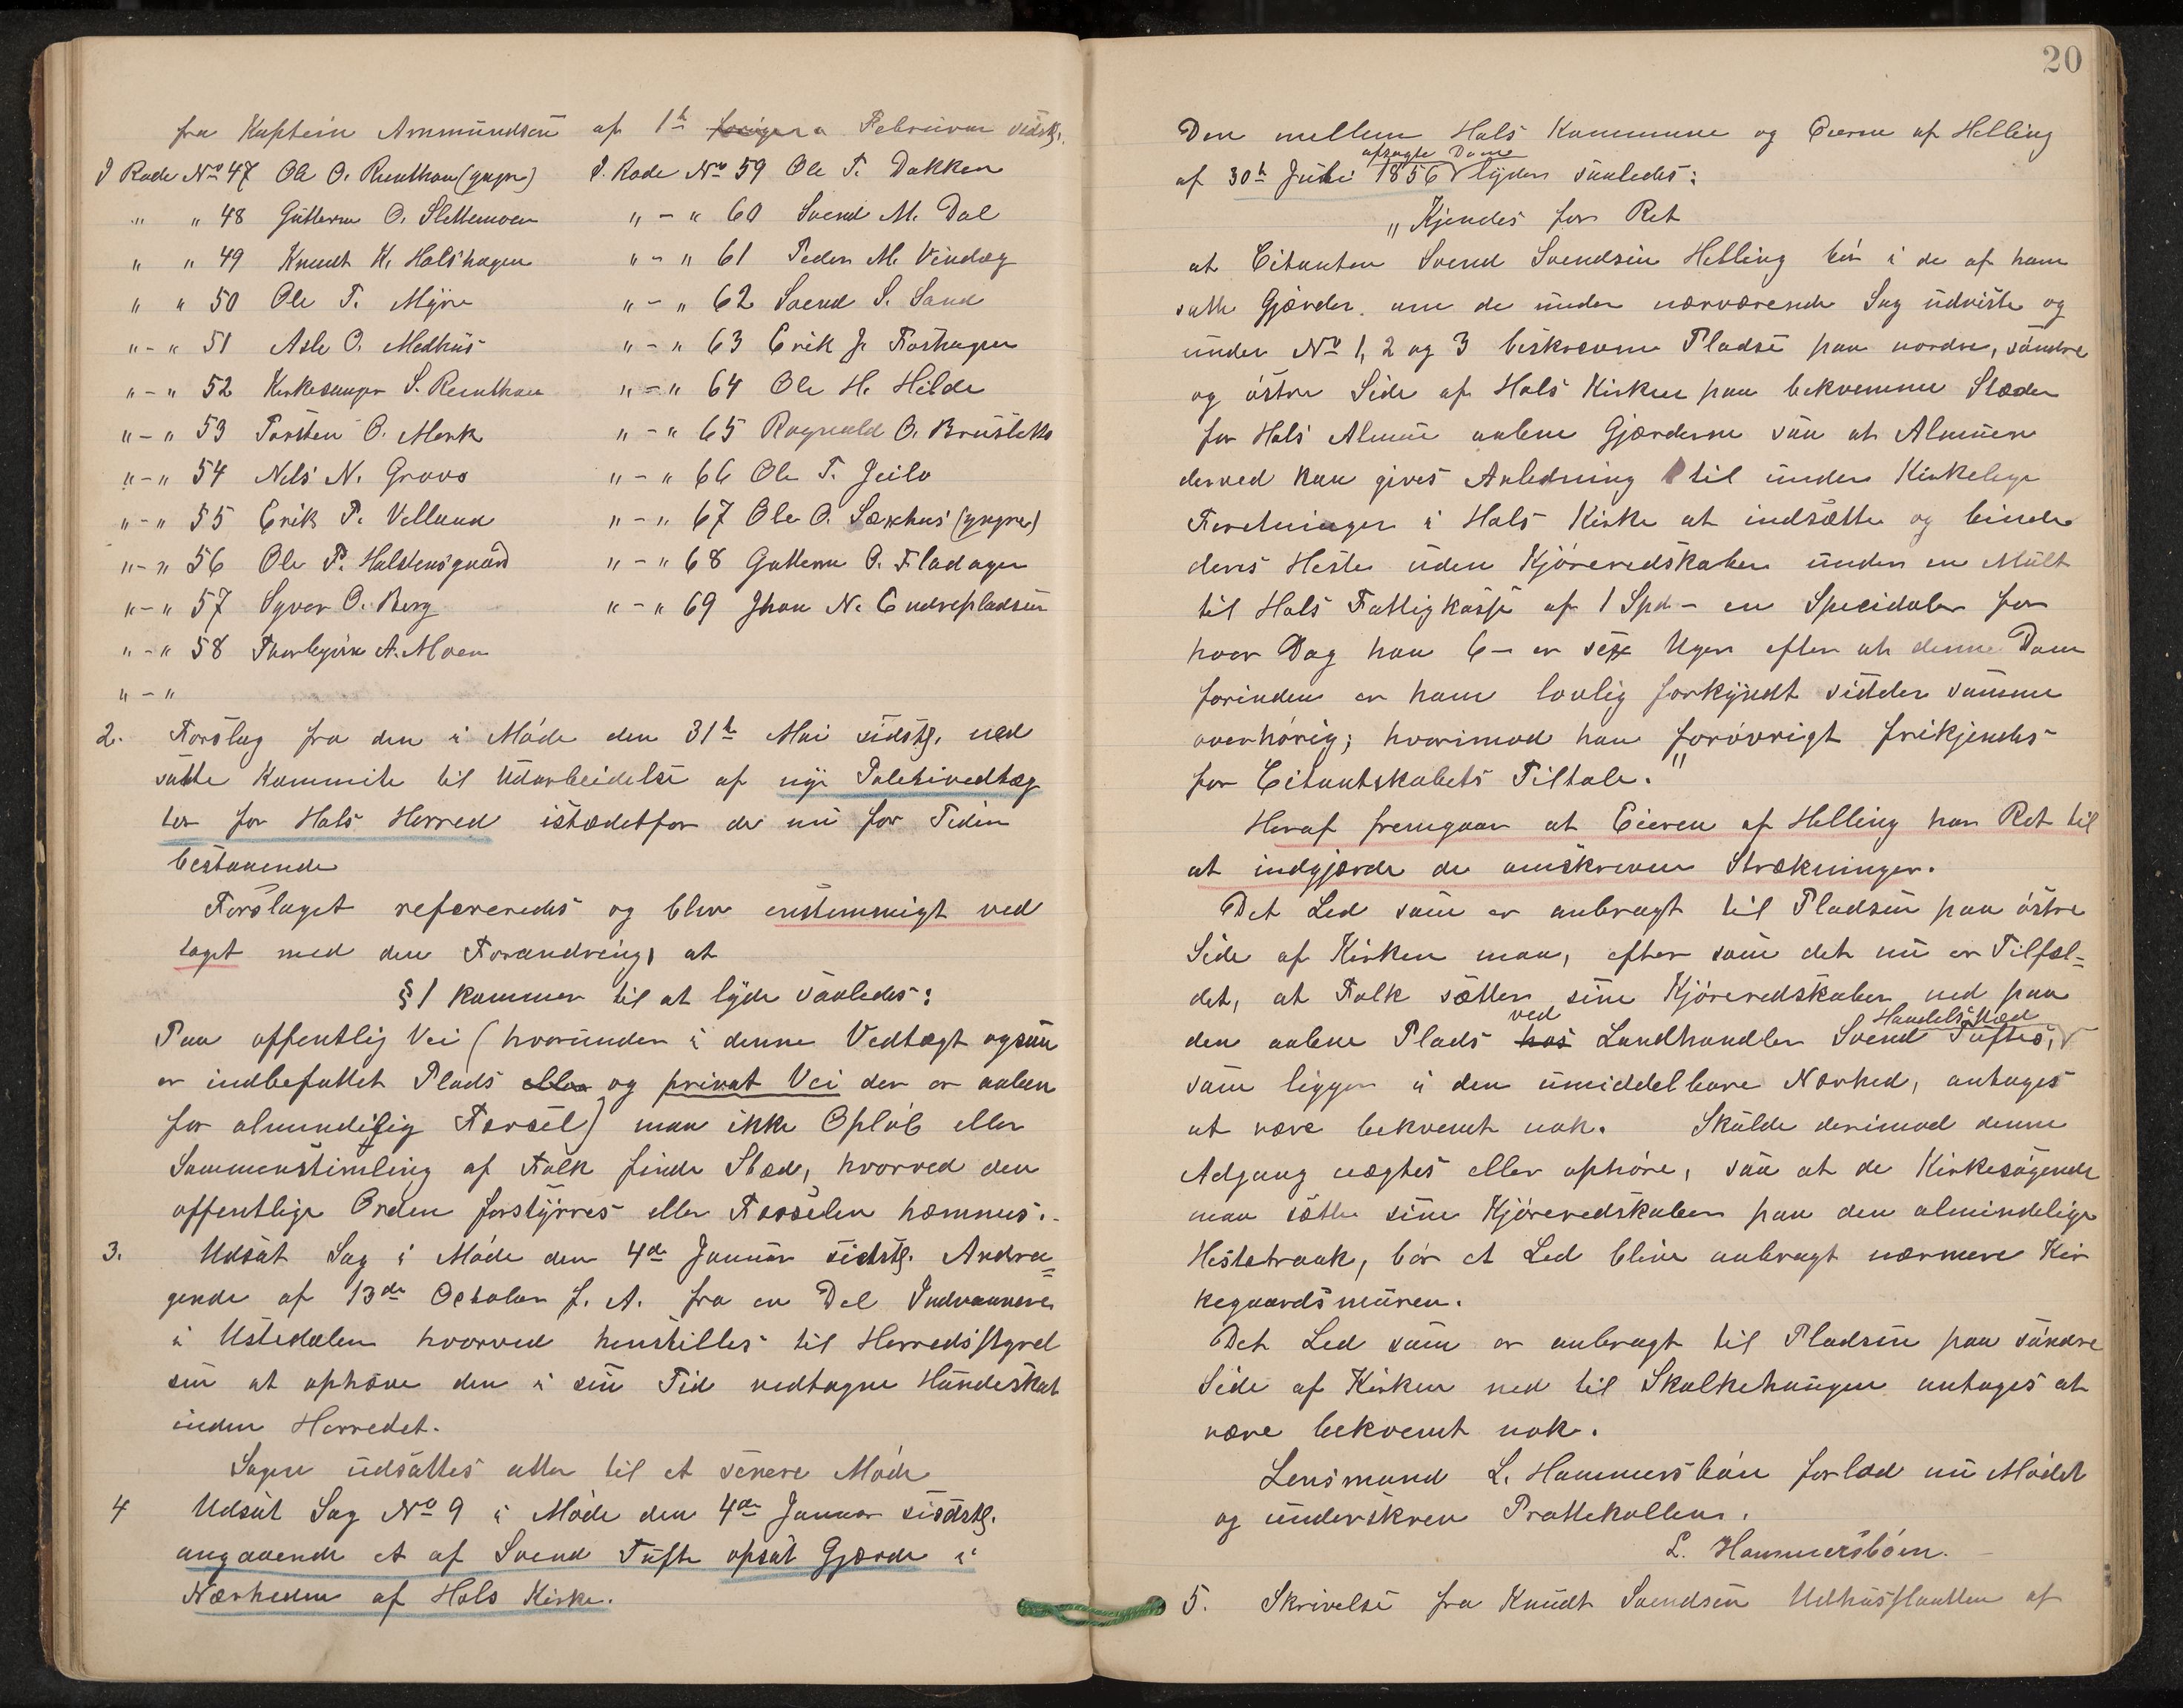 fra Kaptein Ammundsen af 1ste forigera Februar sidstl.
I Rode No 47 Ole O. Reinthon (yngre)
" " 48 Guttorm O. Slettemoen
" " 49 Knudt K. Holshagen
" " 50 Ole T. Myro
" - " 51 Asle O. Medhus
" - " 52 Kirkesanger S. Reinthon
" - " 53 Torsten O. Mork
" - " 54 Nels N. Grovo
" - " 55 Erik P. Villand
" - " 56 Ole P. Halstensgaard
" - " 57 Syver O. Berg
" - " 58 Thorbjørn A. Moen
" - "
I. Rode No 59 Ole T. Dokken
" - " 60 Svend M. Dal
" - " 61 Peder M. Vindeg
" - " 62 Svend S. Sand
" - " 63 Erik J. Foshagen
" - " 64 Ole H. Hilde
" - " 65 Ragnvald O. Brusletto
" - " 66 Ole T. Jeilo
" - " 67 Ole O. Sexhus (yngre)
" - " 68 Guttorm O. Fladager
" - " 69 Jhon N. Endrepladsen
2. Forslag fra den i Møde den 31te Mai sidstl. ned
satte Kommite til Udarbeidelse af nye Politivedtæg
ter for Hols Herred istædetfor de nu for Tiden
bestaaende
Forslaget refereredes og blev enstemmigt ved
taget med den Forandring, at
§ 1 kommer til at lyde saaledes:
Paa offentlig Vei (hvorunder i denne Vedtægt ogsaa
er indbefattet Plads eller og privat Vei der er aaben
for almindelig Færsel) maa ikke Opløb eller
Sammenstimling af Folk finde Sted, hvorved den
offentlige Orden forstyrres eller Færselen hæmmes.
3. Udsat Sag i Møde den 4de Januar sidstl. Andra
gende af 13de October f. A. fra en Del Indvaanere
i Ustedalen hvorved henstilles til Herredsstyrel
sen at ophæve den i sin Tid vedtagne Hundeskat
inden Herredet.
Sagen udsattes atter til et senere Møde
4 Udsat Sag No 9 i Møde den 4de Januar sidstl.
angaaende et af Svend Tufte opsat Gjærde i
Nærheden af Hols Kirke.
20
Den mellem Hols Kommune og Eierne af Helling
afsagte Dom
af 30te Juli 1856 lyder saaledes:
"Kjendes for Ret
at Citanten Svend Svendsen Helling bør i de af ham
satte Gjærder om de under nærværende Sag udviste og
under No 1, 2 og 3 beskrevne Pladse paa nordre, søndre
og østre Side af Hols Kirken paa bekvemme Stæder
for Hols Almue aabne Gjærderne saa at Almuen
derved kan gives Anledning til under Kirkelige
Foretninger i Hols Kirke at indsætte og binde
deres Heste uden Kjøreredskaber under en Mult
til Hols Fattigkasse af 1 Spd - en Speidaler for
hver Dag han 6 - er sex Uger efter at denne Dom
forinden er ham lovlig forkyndt sidder samme
overhørig; hvorimod han forøvrigt frikjendes
for Citantskabets Tiltale."
Heraf fremgaar at Eieren af Helling har Ret til
at indgjærde de omskrevne Strækninger.
Det Led som er anbragt til Pladsen paa østre
Side af Kirken maa, efter som det nu er Tilfæl-
det, at Folk sætter sine Kjøreredskaber ned paa
den aabne Plads hos ved Landhandler Svend Tuftes, Handelsted
som ligger i den umiddelbare Nærhed, antages
at være bekvemt nok. Skulde derimod denne
Adgang nægtes eller ophøre, saa at de Kirkesøgende
maa sætte sine Kjøreredskaber paa den almindelige
Hestetraak, bør et Led blive anbragt nærmere Kir
kegaardsmuren.
Det Led som er anbragt til Pladsen paa søndre
Side af Kirken ned til Skolkehaugen antages at
være bekvemt nok.
Lensmand L. Hammersbøen forlod nu Mødet
og underskrev Prottekollen.
L. Hammersbøen.
5. Skrivelse fra Knudt Svendsen Udhusslaatten af